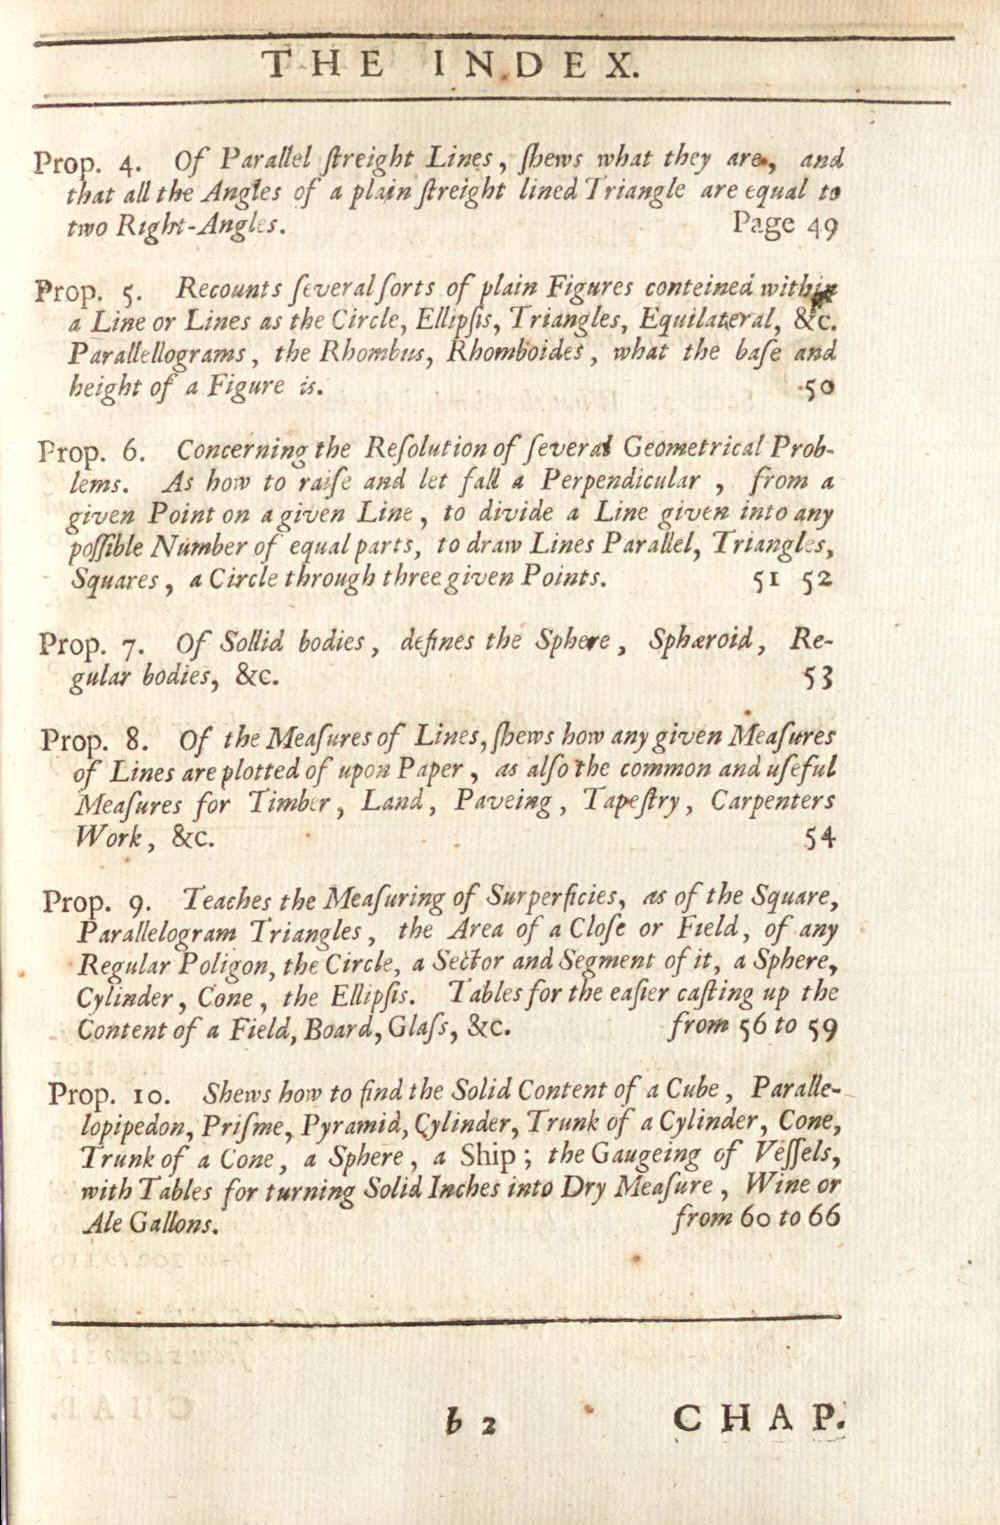 THE INDEX.
Prop. 4. Of Parallel ſtreight Lines, ſhews what they are, and
that all the Angles of a plain ſtreight lined Triangle are equal to
two Right-Angles. Page 49
Prop. 5. Recounts ſeveral ſorts of plain Figures conteined within
a Line or Lines as the Circle, Ellipſis, Triangles, Equilateral, &c.
Parallellograms, the Rhombus, Rhomboides, what the baſe and
height of a Figure is. 50
Prop. 6. Concerning the Reſolution of ſeveral Geometrical Prob-
lems. As how to raiſe and let fall a Perpendicular, from a
given Point on a given Line, to divide a Line given into any
poſſible Number of equal parts, to draw Lines Parallel, Triangles,
Squares, a Circle through three given Points. 51 52
Prop. 7. Of Sollid bodies, defines the Sphere, Sphæroid, Re-
gular bodies, &c. 53
Prop. 8. Of the Meaſures of Lines, ſhews how any given Meaſures
of Lines are plotted of upon Paper, as alſo the common and uſeful
Meaſures for Timber, Land, Paveing, Tapeſtry, Carpenters
Work, &c. 54
Prop. 9. Teaches the Meaſuring of Surperficies, as of the Square,
Parallelogram Triangles, the Area of a Cloſe or Field, of any
Regular Poligon, the Circle, a Sector and Segment of it, a Sphere,
Cylinder, Cone, the Ellipſis. Tables for the eaſier caſting up the
Content of a Field, Board, Glaſs, &c. from 56 to 59
Prop. 10. Shews how to find the Solid Content of a Cube, Paralle-
lopipedon, Priſme, Pyramid, Cylinder, Trunk of a Cylinder, Cone,
Trunk of a Cone, a Sphere, a Ship; the Gaugeing of Veſſels,
with Tables for turning Solid Inches into Dry Meaſure, Wine or
Ale Gallons. from 60 to 66
b 2 CHAP.